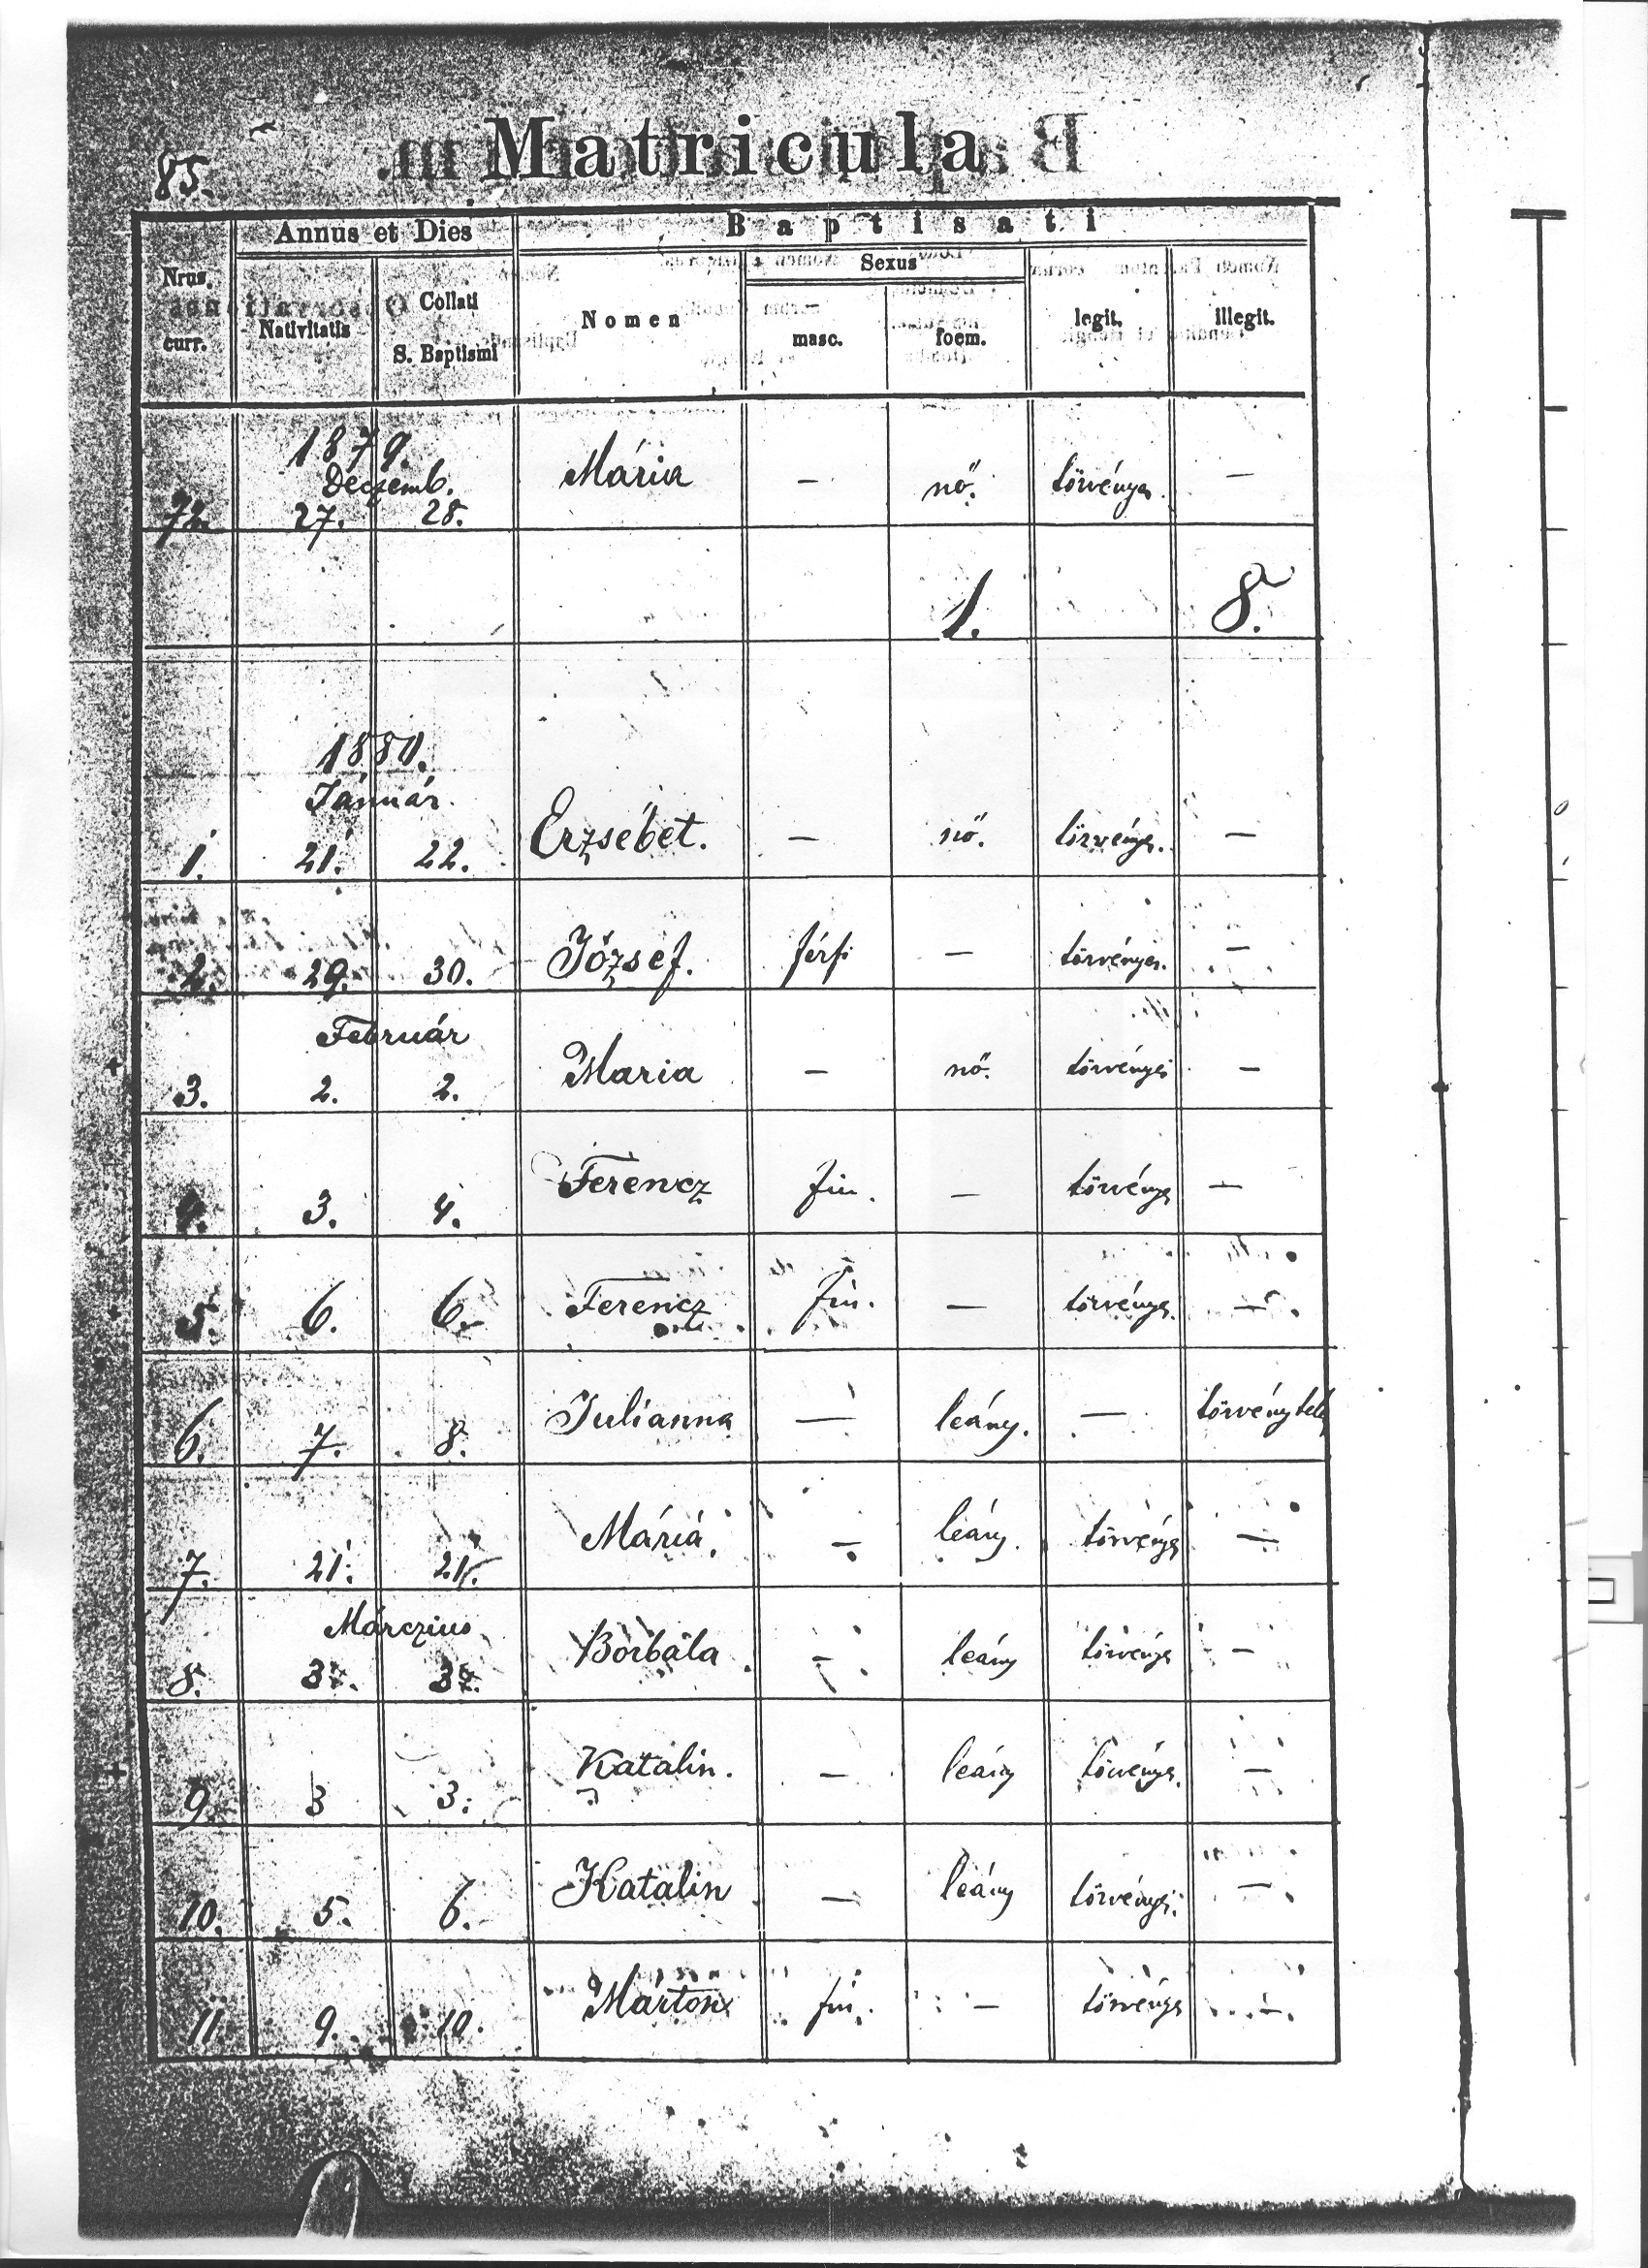 85.
Matricula
Annus et Dies
Baptisati
Nrus. curr.
Nativitatis
Collati S. Baptismi
Nomen
Sexus
masc.
foem.
legit.
illegit.
1879.
Deczemb.
72. 27. 28. Mária — nő. törvényes. —
1. 8.
1880.
Január.
1. 21. 22. Erzsébet. — nő. törvényes. —
2. 29. 30. József. férfi — törvényes. —
Február
3. 2. 2. Maria — nő. törvényes —
4. 3. 4. Ferencz fiu. — törvényes —
5. 6. 6. Ferencz fiu. — törvényes. —
6. 7. 8. Julianna — leány. — törvénytele
7. 21. 21. Mária — leány. törvényes —
Márczius
8. Borbála — leány törvényes —
9. 3 3. Katalin. — leány törvényes. —
10. 5. 6. Katalin — leány törvényes. —
11 9. 10. Márton fiu. — törvényes —